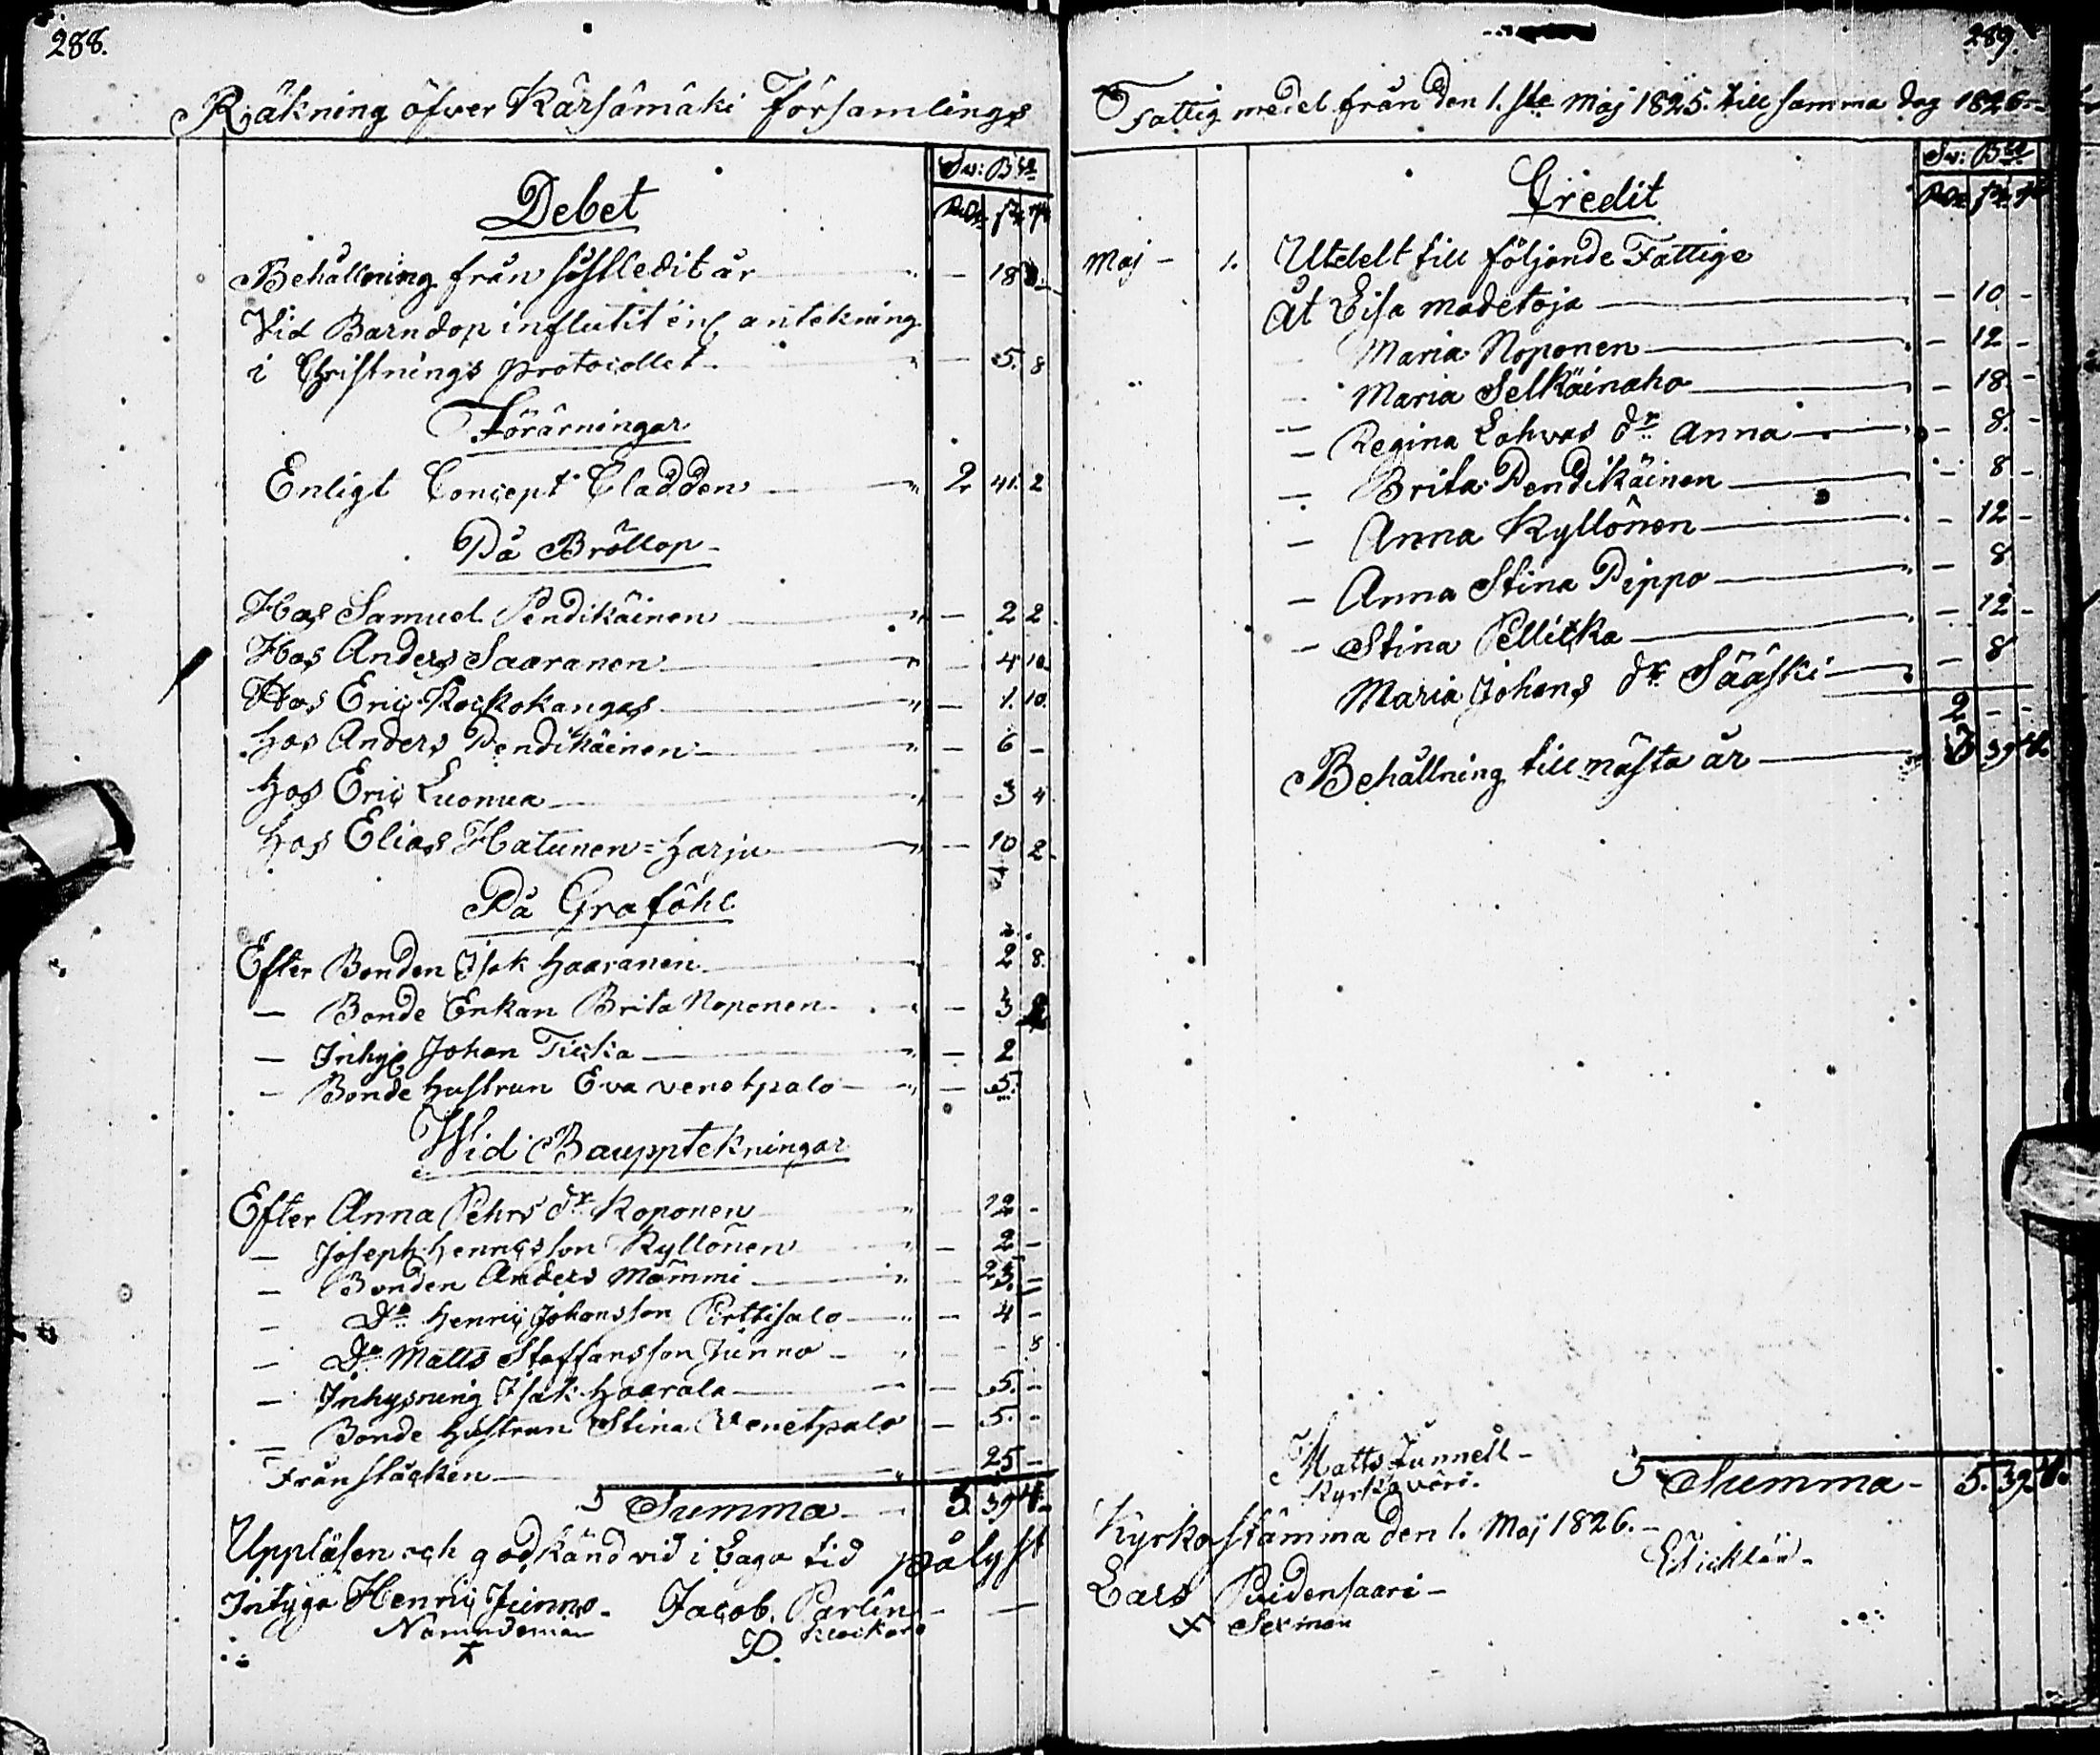 288.
Räkning öfver Kärsämäki Församlings
Sv: Bco
RDr sk r
Debet
Behållning från sistledit år - 18
Vid Barndop influtit enl antekning
i Christnings protocollet - 5. 8
Förärningar
Enligt Concept Cladden 2 41. 2
På Bröllop
Hos Samuel Pendikäinen - 2 2
Hos Anders Saaranen - 4 10.
Hos Eric Kockokangas - 1. 10.
Hos Anders Pendikäinen - 6 -
Hos Eric Luonua - 3 4
Hos Elias Hatunen=harju - 10 2
På Graföhl
Efter Bonden Isak Haaranen 2 8.
— Bonde Enkan Brita Noponen - 3
— Inhys Johan Ticka - 2
— Bonde hustrun Eva venetpalo - 5.
Wid Baupptekningar
Efter Anna Pehrs dr Koponen - 12 -
— Joseph Hennesson Kyllönen - 2 -
— Bonden Anders Mämmi - 23. -
— Do Henric Johansson Pirttisalo - 4 -
— Do Matts Staffansson Junno - - 8
— Inhysning Isak Haarala - 5. -
— Bonde hustrun Stina Venetpalo - 5. -
Från stäcken - 25 -
Summa 5. 39 4.
Uppläsen och godkänd vid i Laga tid pålyst
Intyga Henric Junno. Jacob. Parlin
Nämndeman Klockare
P.
289.
Fattig medel från den 1.ste Maj 1825. till samma dag 1826.
Sv: Bco
RDr sk r
Credit
Maj - 1. Utdelt till följande Fattige
Åt Eisa madetoja - 10 -
Maria Noponen - 12 -
Maria Selkäinaho - 18. -
— Regina Lohvas dr Anna - 8. -
— Brita Pendikäinen - 8 -
— Anna Kyllönen - 12 -
— Anna Stina Pippo - 8
— Stina Pellicka - 12 -
Maria Johans dr Sääski - 8
2 - -
Behållning till nästa år 3 39 4.
Matts Junnell -
Kyrkovärd.
Summa - 5. 39. 4.
Kyrkostämma den 1. Maj 1826. -
Lars Puidensaari -
Sexman